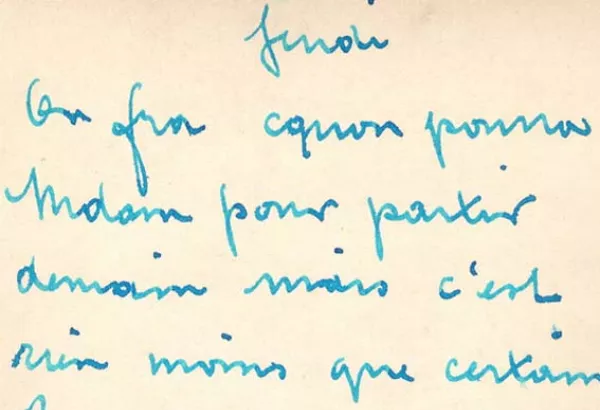 Jeudi
On fra cquon pourra
Mdam pour partir
demain mais c'est
rien moins que certain